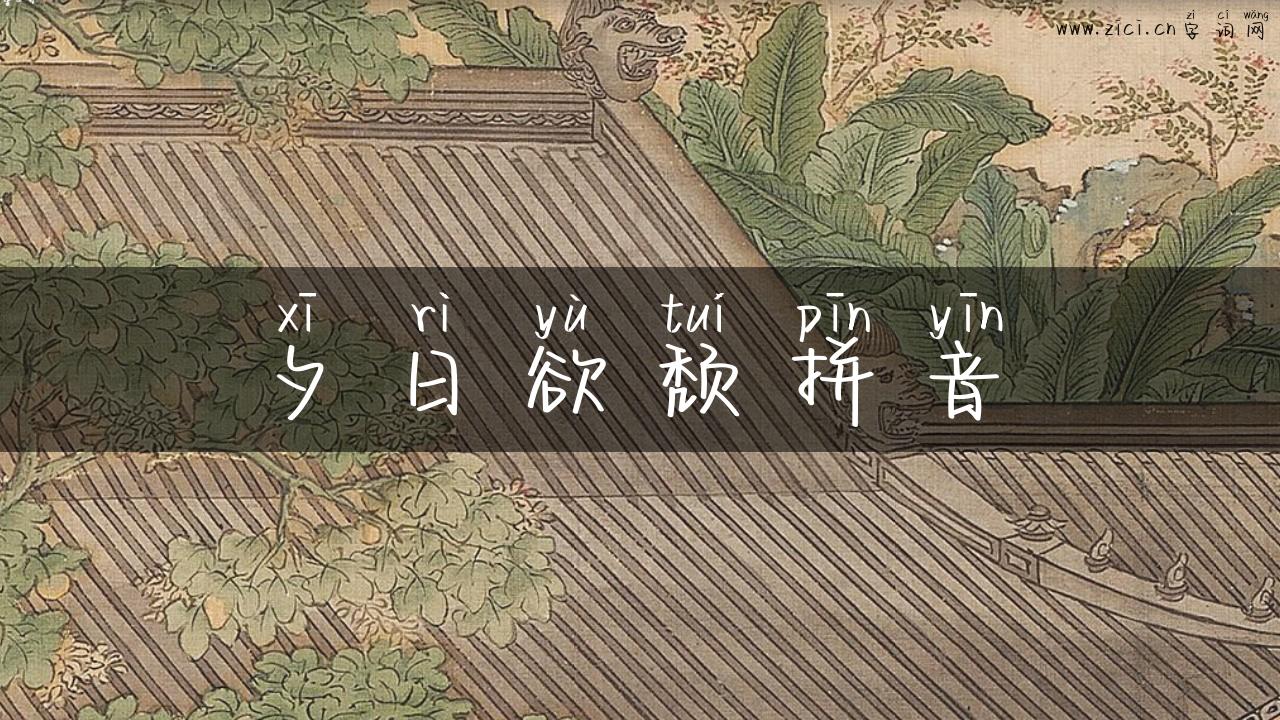 zì cí wǎng
www.zici.cn 字词网
xī rì yù tuí pīn yīn
夕日欲颓拼音